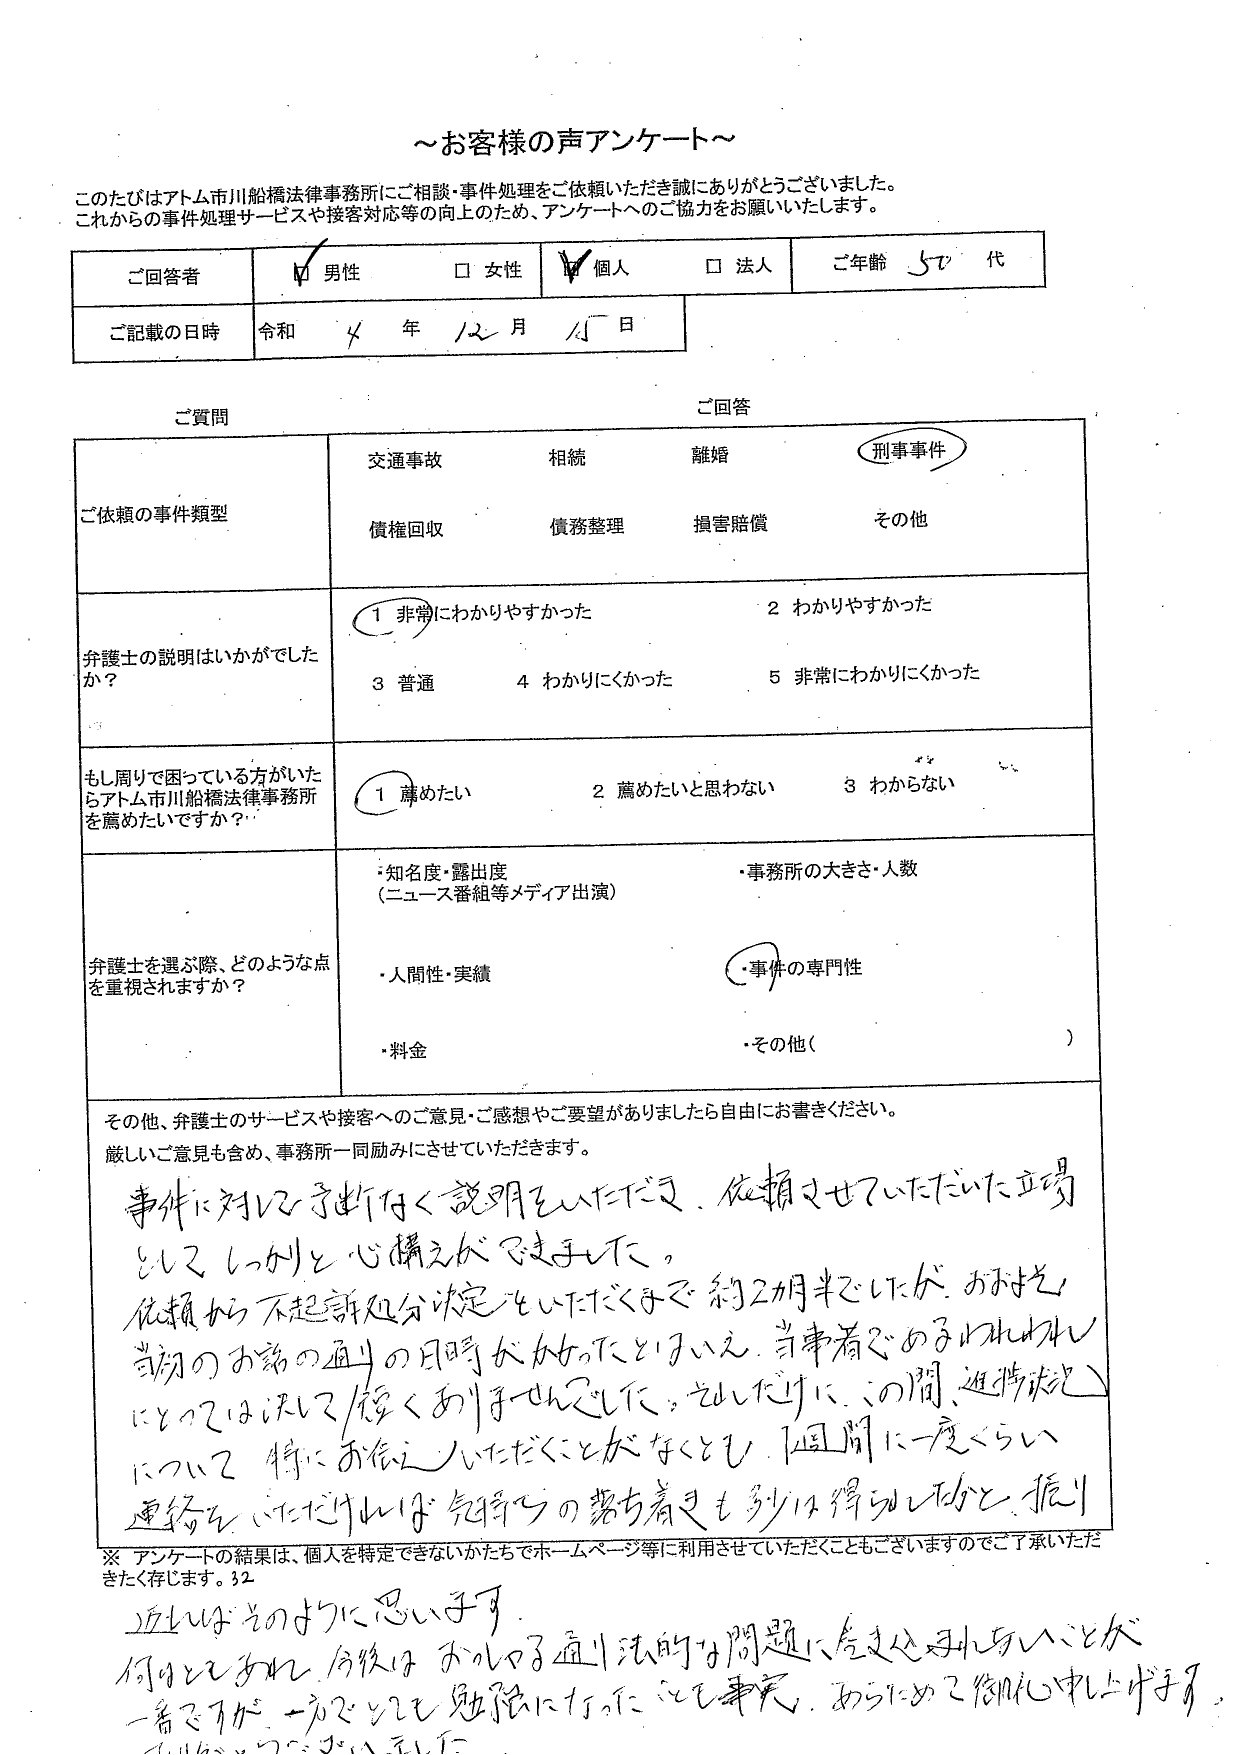 ～お客様の声アンケート～
このたびはアトム市川船橋法律事務所にご相談・事件処理をご依頼いただき誠にありがとうございました。
これからの事件処理サービスや接客対応等の向上のため、アンケートへのご協力をお願いいたします。
ご回答者 ☑ 男性 □ 女性 ☑ 個人 □ 法人 ご年齢 50 代
ご記載の日時 令和 4 年 12 月 15 日
ご質問 ご回答
ご依頼の事件類型
交通事故 相続 離婚 刑事事件
債権回収 債務整理 損害賠償 その他
弁護士の説明はいかがでした
か？
1 非常にわかりやすかった 2 わかりやすかった
3 普通 4 わかりにくかった 5 非常にわかりにくかった
もし周りで困っている方がいた
らアトム市川船橋法律事務所
を薦めたいですか？
1 薦めたい 2 薦めたいと思わない 3 わからない
弁護士を選ぶ際、どのような点
を重視されますか？
・知名度・露出度 ・事務所の大きさ・人数
（ニュース番組等メディア出演）
・人間性・実績 ・事件の専門性
・料金 ・その他（ ）
その他、弁護士のサービスや接客へのご意見・ご感想やご要望がありましたら自由にお書きください。
厳しいご意見も含め、事務所一同励みにさせていただきます。
事件に対して予断なく説明をいただき、依頼させていただいた立場
としてしっかりと心構えができました。
依頼から不起訴処分決定をいただくまで約2カ月半でしたが、おおよそ
当初のお話の通りの日時がかかったとはいえ、当事者であるわれわれ
にとっては決して短くありませんでした。それだけに、この間、進捗状況
について特にお伝えいただくことがなくとも、1週間に一度くらい
連絡をいただければ気持ちの落ち着きも多少は得られたかと、振り
※ アンケートの結果は、個人を特定できないかたちでホームページ等に利用させていただくこともございますのでご了承いただ
きたく存じます。32
返ればそのように思います。
何はともあれ、今後はおっしゃる通り法的な問題に巻き込まれないことが
一番ですが、一方でとても勉強になったことも事実、あらためて御礼申し上げます。
ございました